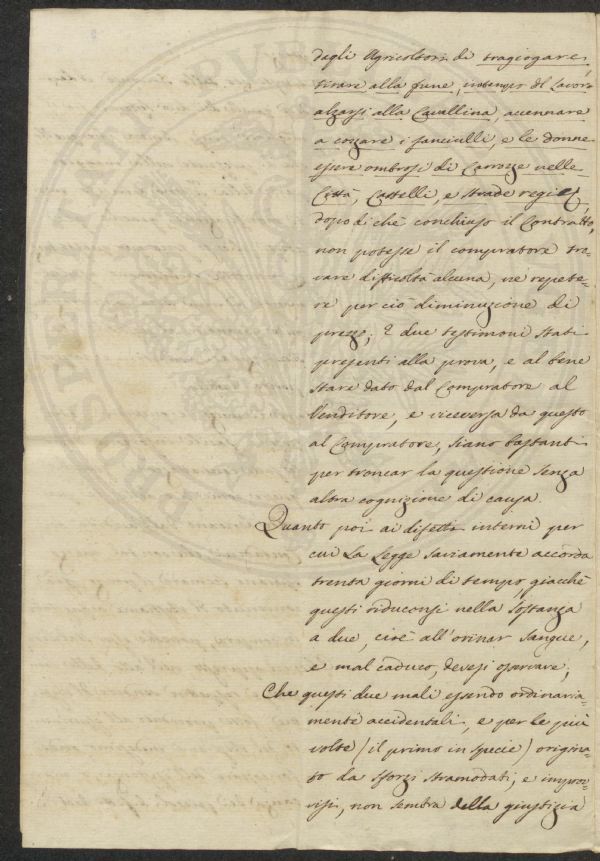 degli Agricoltori di tragiogare,
tirare alla fune, alzarsi alla Cavallina, accennare
a cozzare i fanciulli, e le donne
essere ombrosi di Carrozze nelle
Città, Castelli, e strade regie,
dopo di chè conchiuso il Contratto,
non potesse il compratore tro-
vare difficoltà alcuna, ne repete-
re per ciò diminuzione di
prezzo; E due testimoni stati
presenti alla prova, e al bene
stare dato dal Compratore al
Venditore, e viceversa da questo
al Compratore, siano bastanti
per troncar la questione senza
altra cognizione di causa.
Quanto poi ai difetti interni per
cui La Legge saviamente accorda
trenta giorni di tempo, giacchè
questi riduconsi nella sostanza
a due, cioè all'orinar sangue,
e mal caduco, devesi osservare;
Che questi due mali essendo ordinaria-
mente accidentali, e per le più
volte (il primo in specie) origina-
to da sforzi stramodati, e improv-
visi, non sembra della giustizia